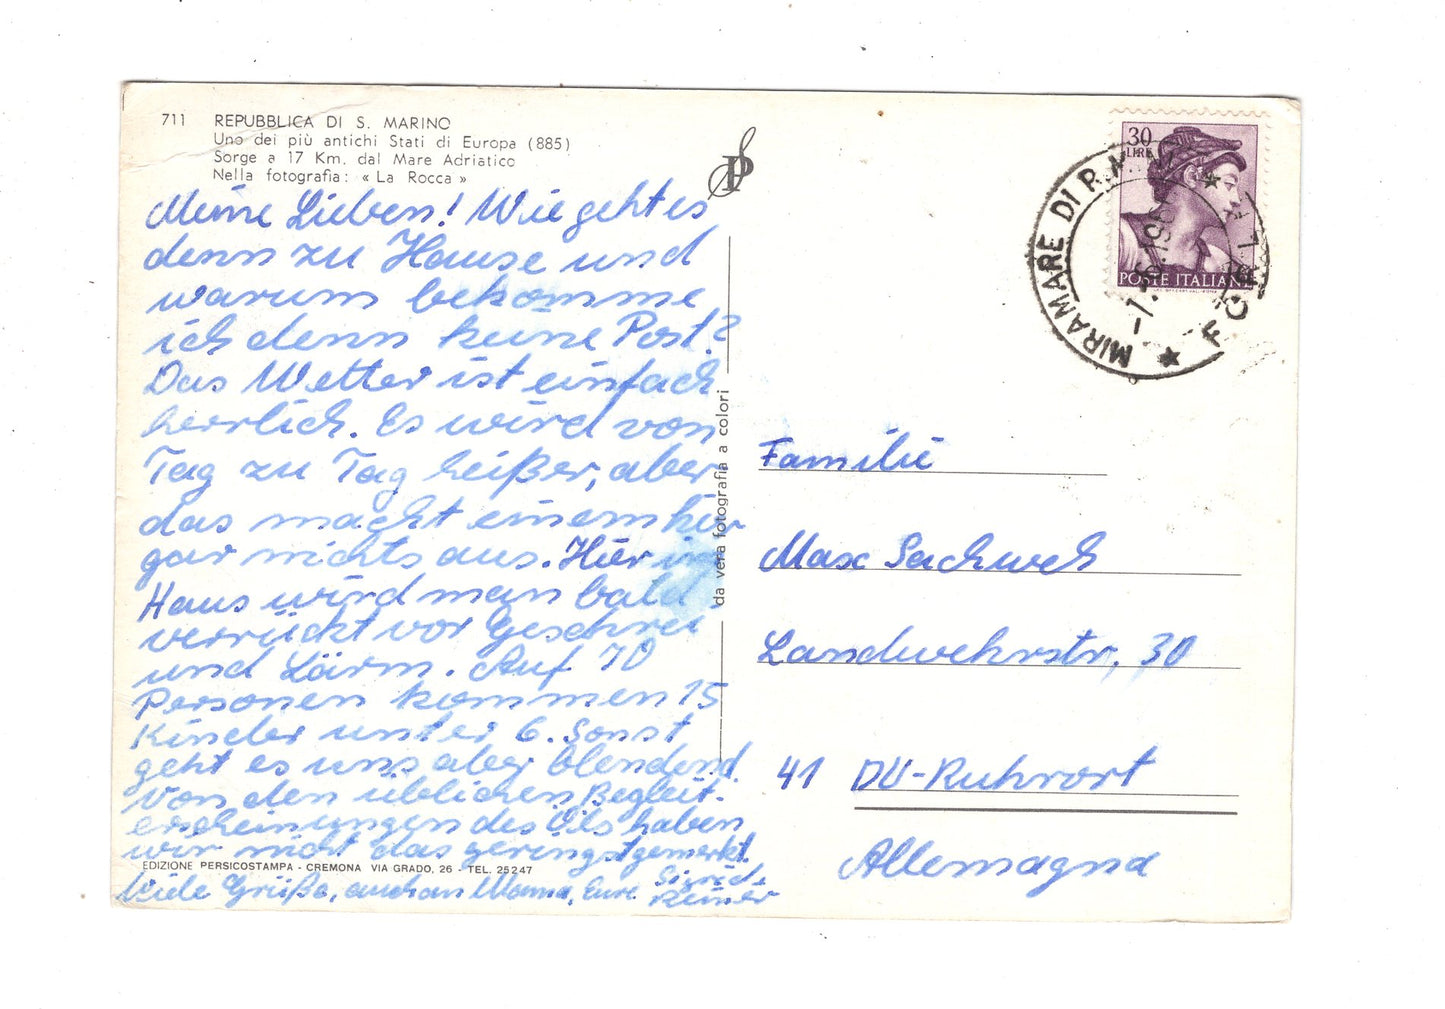 711 REPUBBLICA DI S. MARINO
Uno dei più antichi Stati di Europa (885)
Sorge a 17 Km. dal Mare Adriatico
Nella fotografia: « La Rocca »
Meine Lieben! Wie geht es
denn zu Hause und
warum bekomme
ich denn keine Post?
Das Wetter ist einfach
herrlich. Es wird von
Tag zu Tag heißer, aber
das macht einem hier
gar nichts aus. Hier im
Haus wird man bald
verrückt vor Geschrei
und Lärm. Auf 70
Personen kommen 15
Kinder unter 6. Sonst
geht es uns aber blendend.
Von den üblichen Begleit-
erscheinungen des Öls haben
wir nicht das geringst gemerkt.
Viele Grüße, auch an Mama, Eure Sigrid,
Reiner
EDIZIONE PERSICOSTAMPA - CREMONA VIA GRADO, 26 - TEL. 25247
da vera fotografia a colori
30
LIRE
POSTE ITALIANE
MIRAMARE DI RIMINI
Familie
Max Sachweh
Landwehrstr, 30
41 DU-Ruhrort
Allemagna